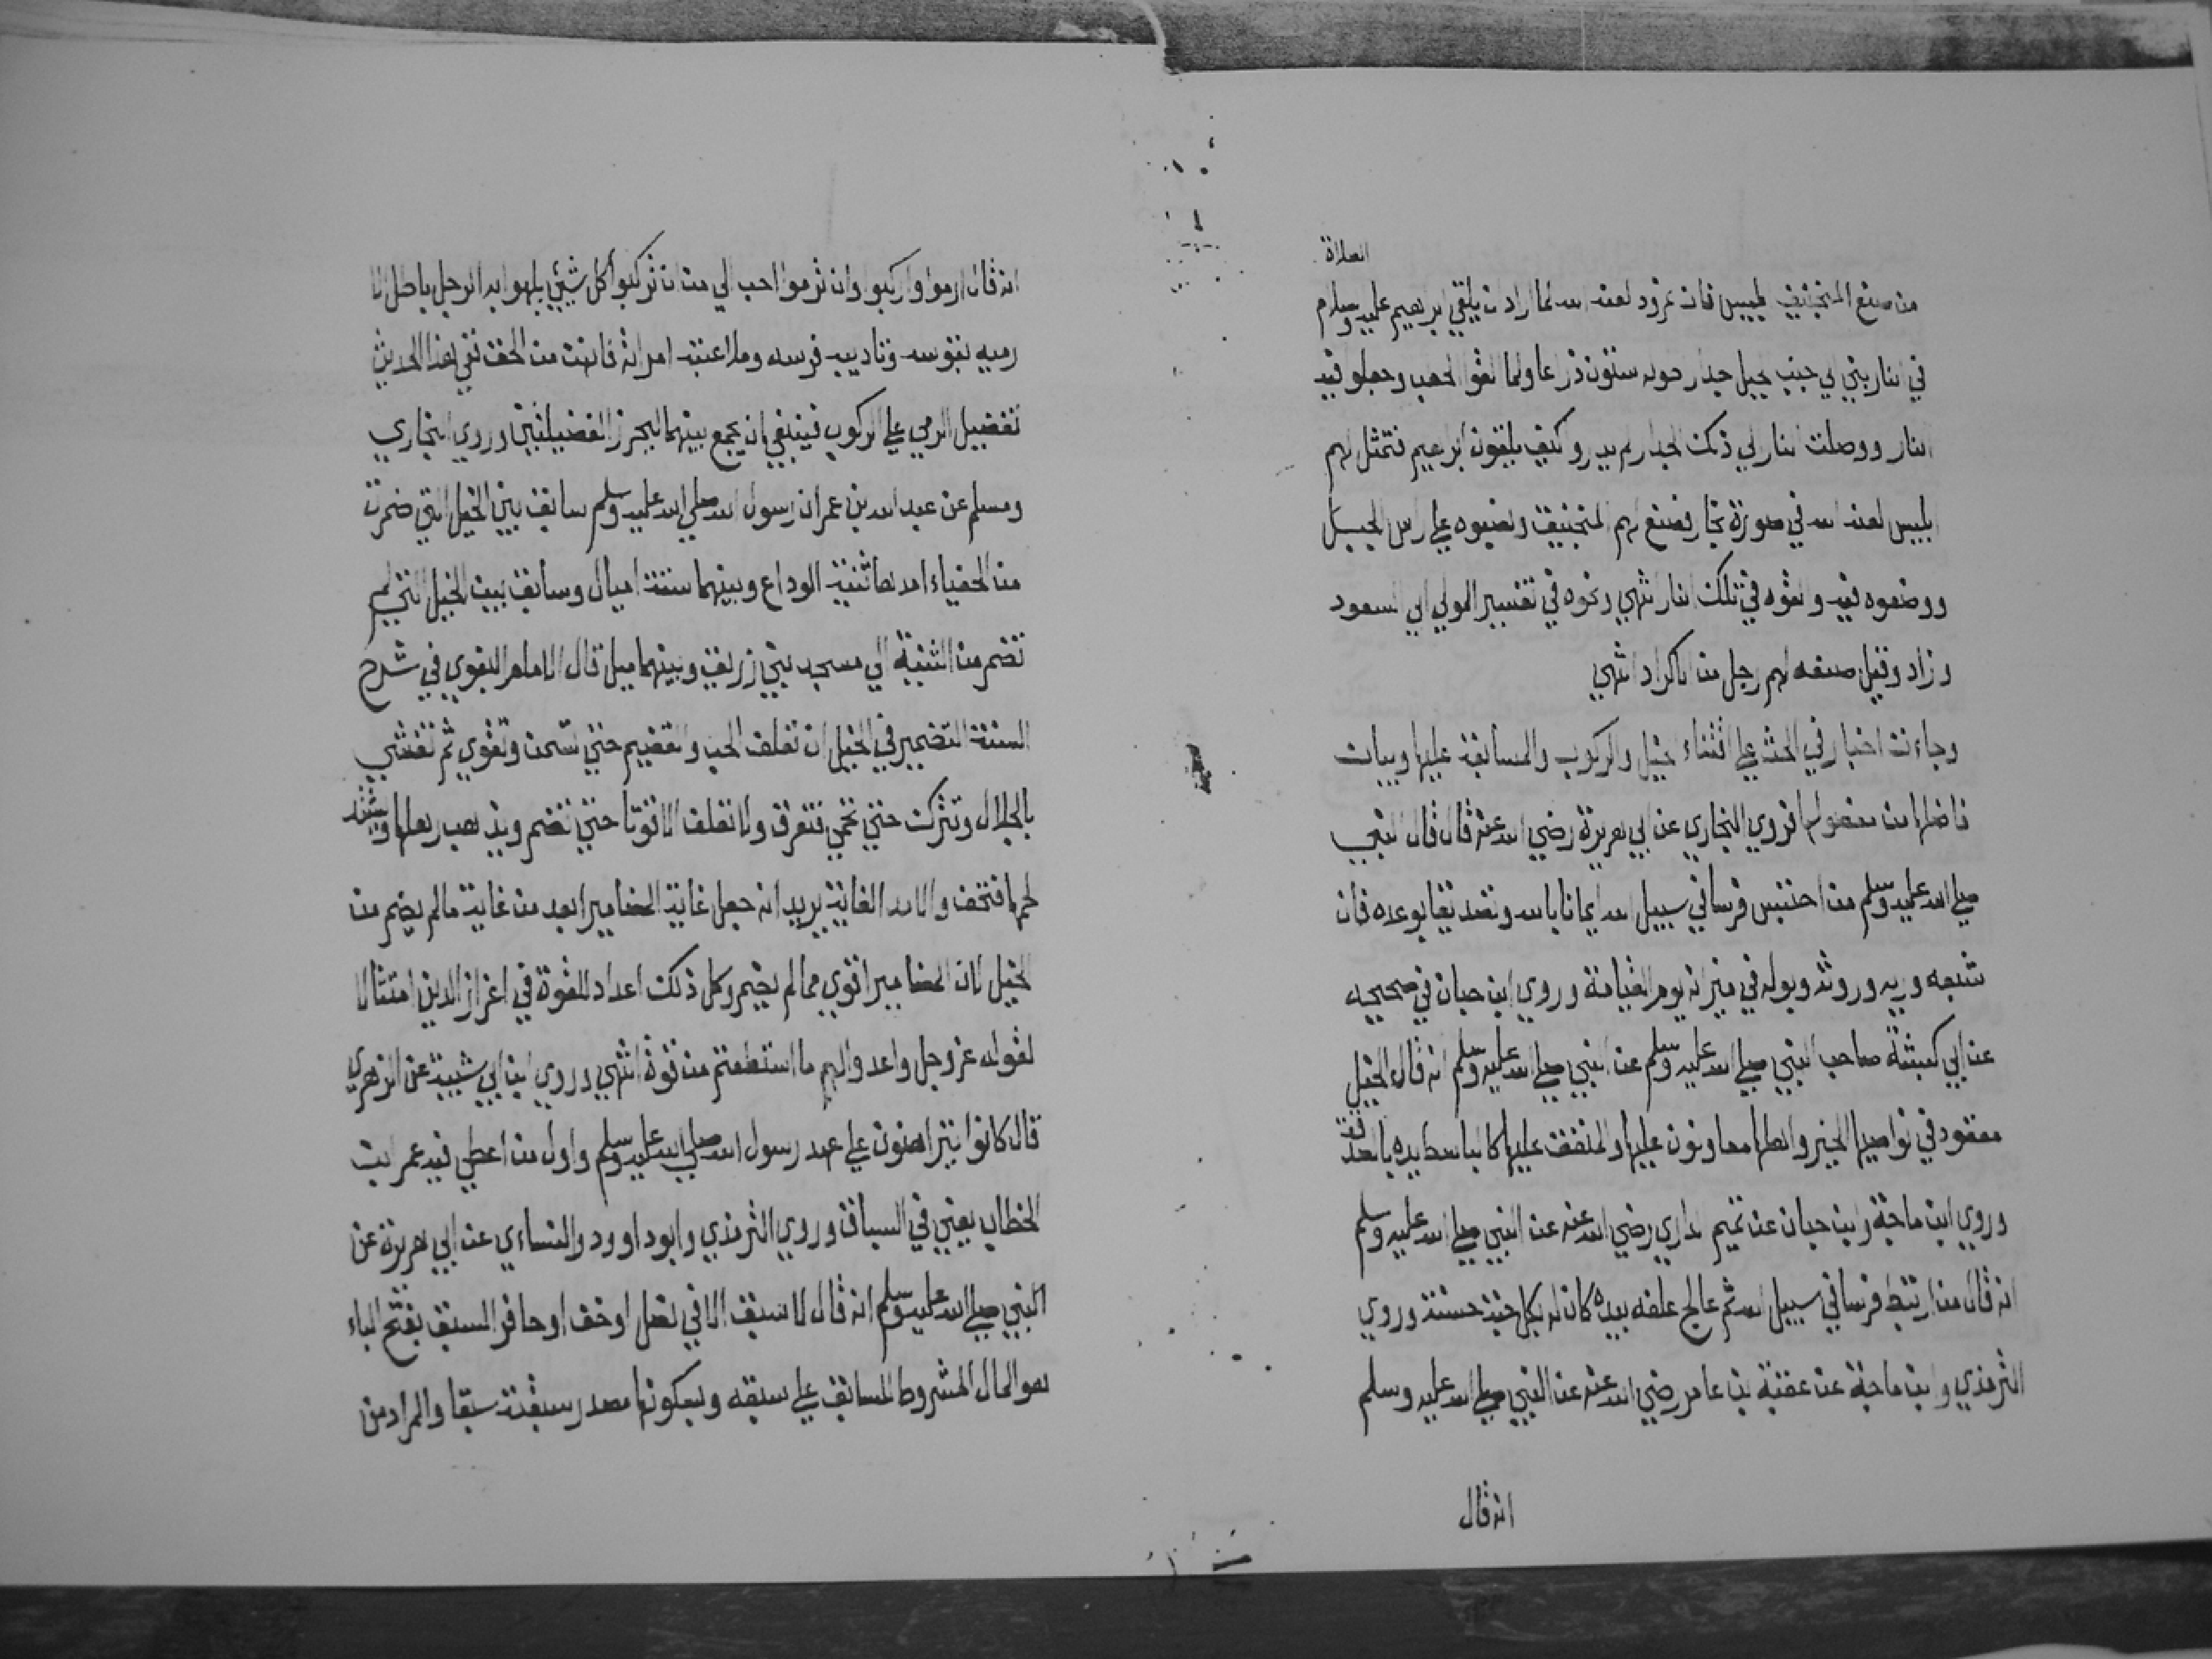 الصلاة
من صنع المنجنيق ابليس فان نمرود لعنه الله لما اراد ان يلقي ابرهيم عليه وسلام
في النار بني الي جنب الجبل جدار طوله ستون ذراعا ولما القوا الحطب وجعلو فيه
النار ووصلت النار الي ذلك الجدار لم يدروا كيف يلقون ابرهيم فتمثل لهم
ابليس لعنه الله في صورة نجار فصنع لهم المنجنيق ونصبوه علي راس الجبل
ووضعوه فيه والقوه في تلك النار انتهي ونحوه في تفسير المولي ابي السعود
وزاد وقيل صنعه لهم رجل من الاكراد انتهي
وجاءت اخبار في الحث علي اقتناء الخيل والركوب والمسابقة عليها وبيات
فاضلها من مفضولها فروي البخاري عن ابي هريرة رضي الله عنه قال قال النبي
صلي الله عليه وسلم من احتبس فرسا في سبيل الله ايمانا بالله وتصديقا بوعده فان
شبعه وريه وروثه وبوله في ميزانه يوم القيامة وروي ابن حبان في صحيحه
عن ابي كبشة صاحب النبي صلي الله عليه وسلم عن النبي صلي الله عليه وسلم انه قال الخيل
معقود في نواصيها الخير واهلها معاونون عليها والمنفق عليها كالباسط يده بالصدقة
وروي ابن ماجة وابن حبان عن تميم الداري رضي الله عنه عن النبي صلي الله عليه وسلم
انه قال من ارتبط فرسا في سبيل الله ثم عالج علفه بيده كان له بكل حبة حسنة وروي
الترمذي وابن ماجة عن عقبة بن عامر رضي الله عنه عن النبي صلي الله عليه وسلم
انه قال
انه قال ارموا واركبوا وان ترموا احب الي من ان تركبوا كل شيئ يلهوا به الرجل باطل الا
رميه بقوسه وتاديبه فرسه وملاعبته امراته فانهن من الحق ففي هذا الحديث
تفضيل الرمي علي الركوب فينبغي ان يجمع بينهما ليحرز الفضيلتين وروي البخاري
ومسلم عن عبد الله بن عمر ان رسول الله صلي الله عليه وسلم سابق بين الخيل التي ضمرت
من الحفياء امدها ثنية الوداع وبينهما ستة اميال وسابق بين الخيل التي لم
تضمر من الثنية الي مسجد بني زريق وبينهما ميل قال الامام البغوي في شرح
السنة التضمير في الخيل ان تعلف الحب والقضيم حتي تسمن وتقوي ثم تغشي
بالجلال وتترك حتي تحمي فتعرق ولا تعلف الا قوتا حتي تضمر ويذهب رهلها ويشتد
لحمها فتخف والامد الغاية يريد انه جعل غاية المضامير ابعد من غاية مالم يضمر من
الخيل لان المضامير اقوي مما لم يضمر وكل ذلك اعداد للقوة في اعزاز الدين امتثالا
لقوله عز وجل واعدوا لهم ما استطعتم من قوة انتهي وروي ابن ابي شيبة عن الزهري
قال كانوا يتراهنون علي عهد رسول الله صلي الله عليه وسلم واول من اعطي فيه عمر ابن
الخطاب يعني في السباق وروي الترمذي وابوداوود والنساءي عن ابي هريرة عن
النبي صلي الله عليه وسلم انه قال لا سبق الا في نصل او خف او حافر السبق بفتح الباء
هو المال المشروط للسابق علي سبقه وبسكونها مصدر سبقته سبقا والمراد من